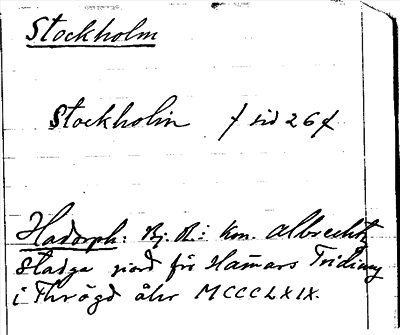 Stockholm
Stockholm / sid 26 /
Hadorph: Bj. R.: Kon. Albrechtz
Stadga giord för Hamars Tridiung
i Thrögd åhr MCCCLXIX.